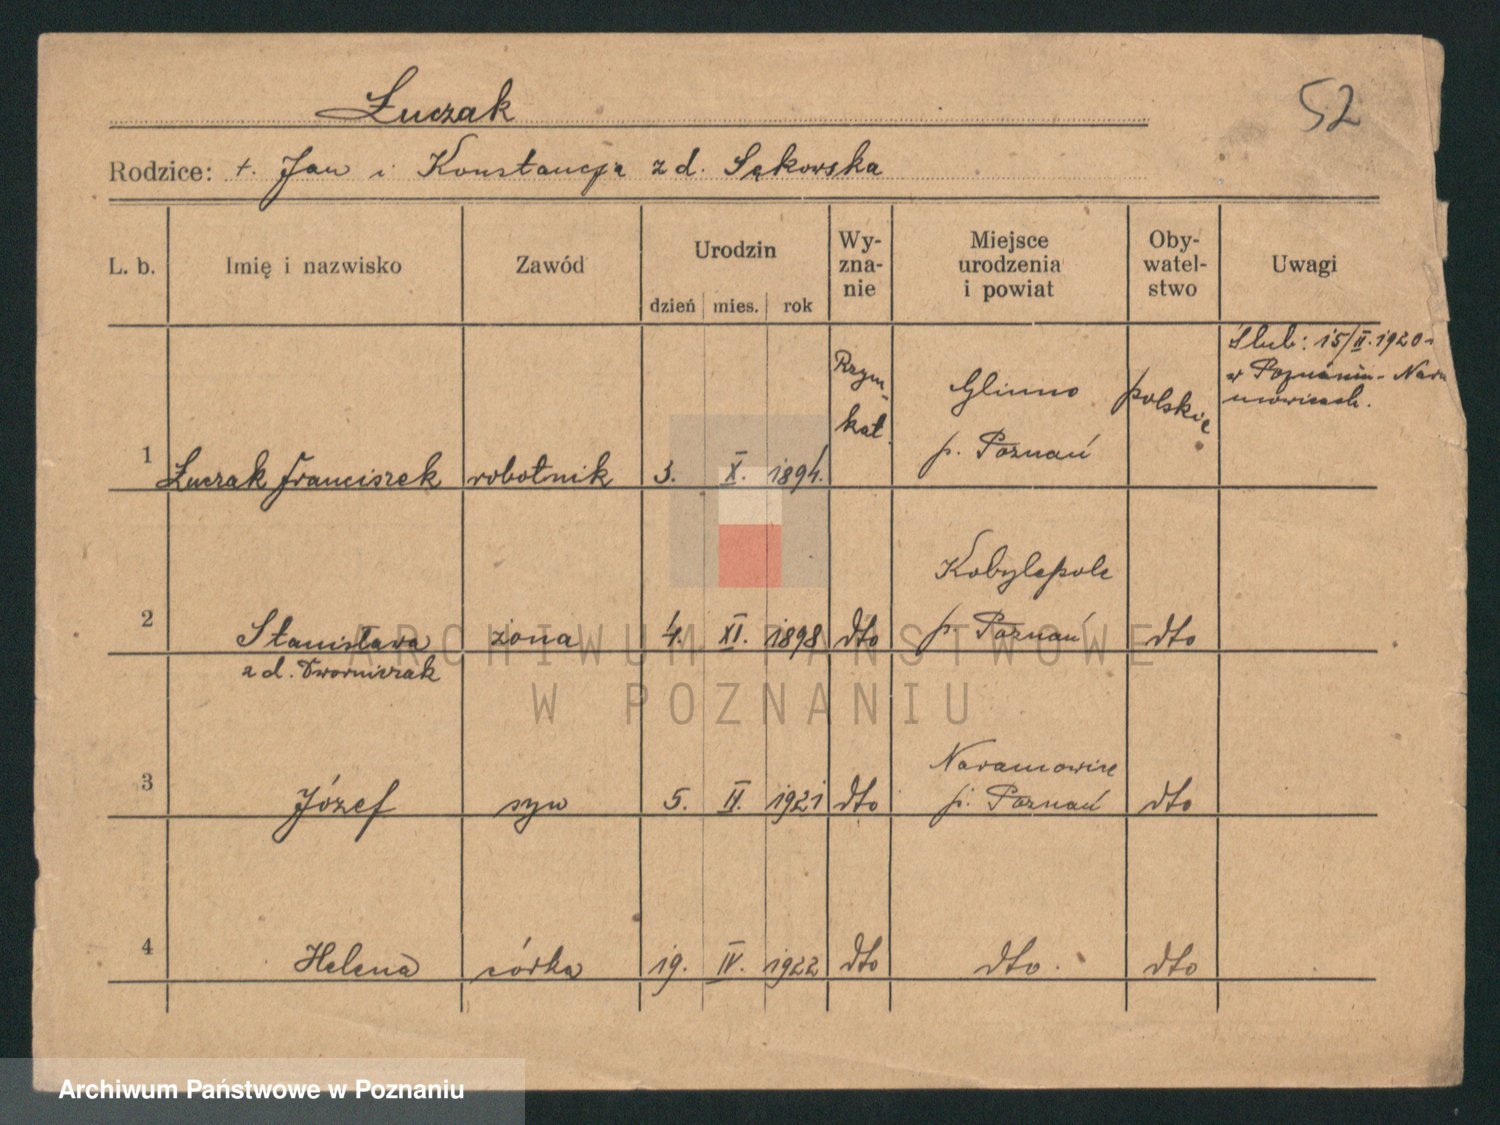 Łuczak
52
Rodzice: †. Jan i Konstancja z d. Sękowska
L. b. Imię i nazwisko Zawód Urodzin dzień mies. rok Wy-zna-nie Miejsce urodzenia i powiat Oby-watel-stwo Uwagi
1 Łuczak Franciszek robotnik 3. X. 1894. Rzym-kat. Glinno p. Poznań polskie
Ślub: 15/II.1920.
w Poznaniu-Nara
mowicach.
2 Stanisława żona 4. XI. 1898 dto Kobylepole p. Poznań dto
z d. Dworniczak
3 Józef syn 5. II. 1921 dto Naramowice p. Poznań dto
4 Helena córka 19. IV. 1922 dto dto. dto
ARCHIWUM PAŃSTWOWE
W POZNANIU
Archiwum Państwowe w Poznaniu